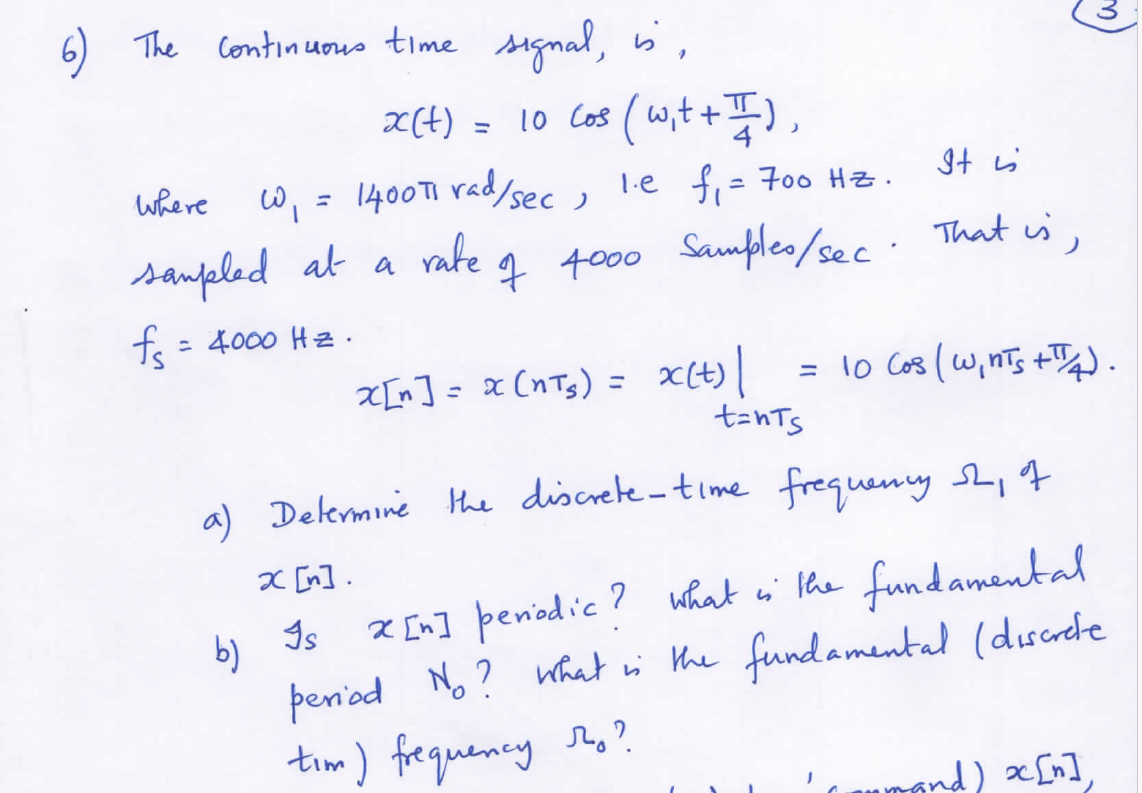 3
6) The Continuous time signal, is,
x(t) = 10 Cos (ω₁t + π/4),
where ω₁ = 1400π rad/sec, i.e f₁ = 700 HZ. It is
sampled at a rate of 4000 Samples/sec. That is,
fs = 4000 HZ.
x[n] = x(nTs) = x(t)| = 10 Cos(ω₁nTs + π/4).
t=nTs
a) Determine the discrete-time frequency Ω₁ of
x[n].
b) Is x[n] periodic? what is the fundamental
period N₀? what is the fundamental (discrete
tim) frequency Ω₀?
command) x[n],